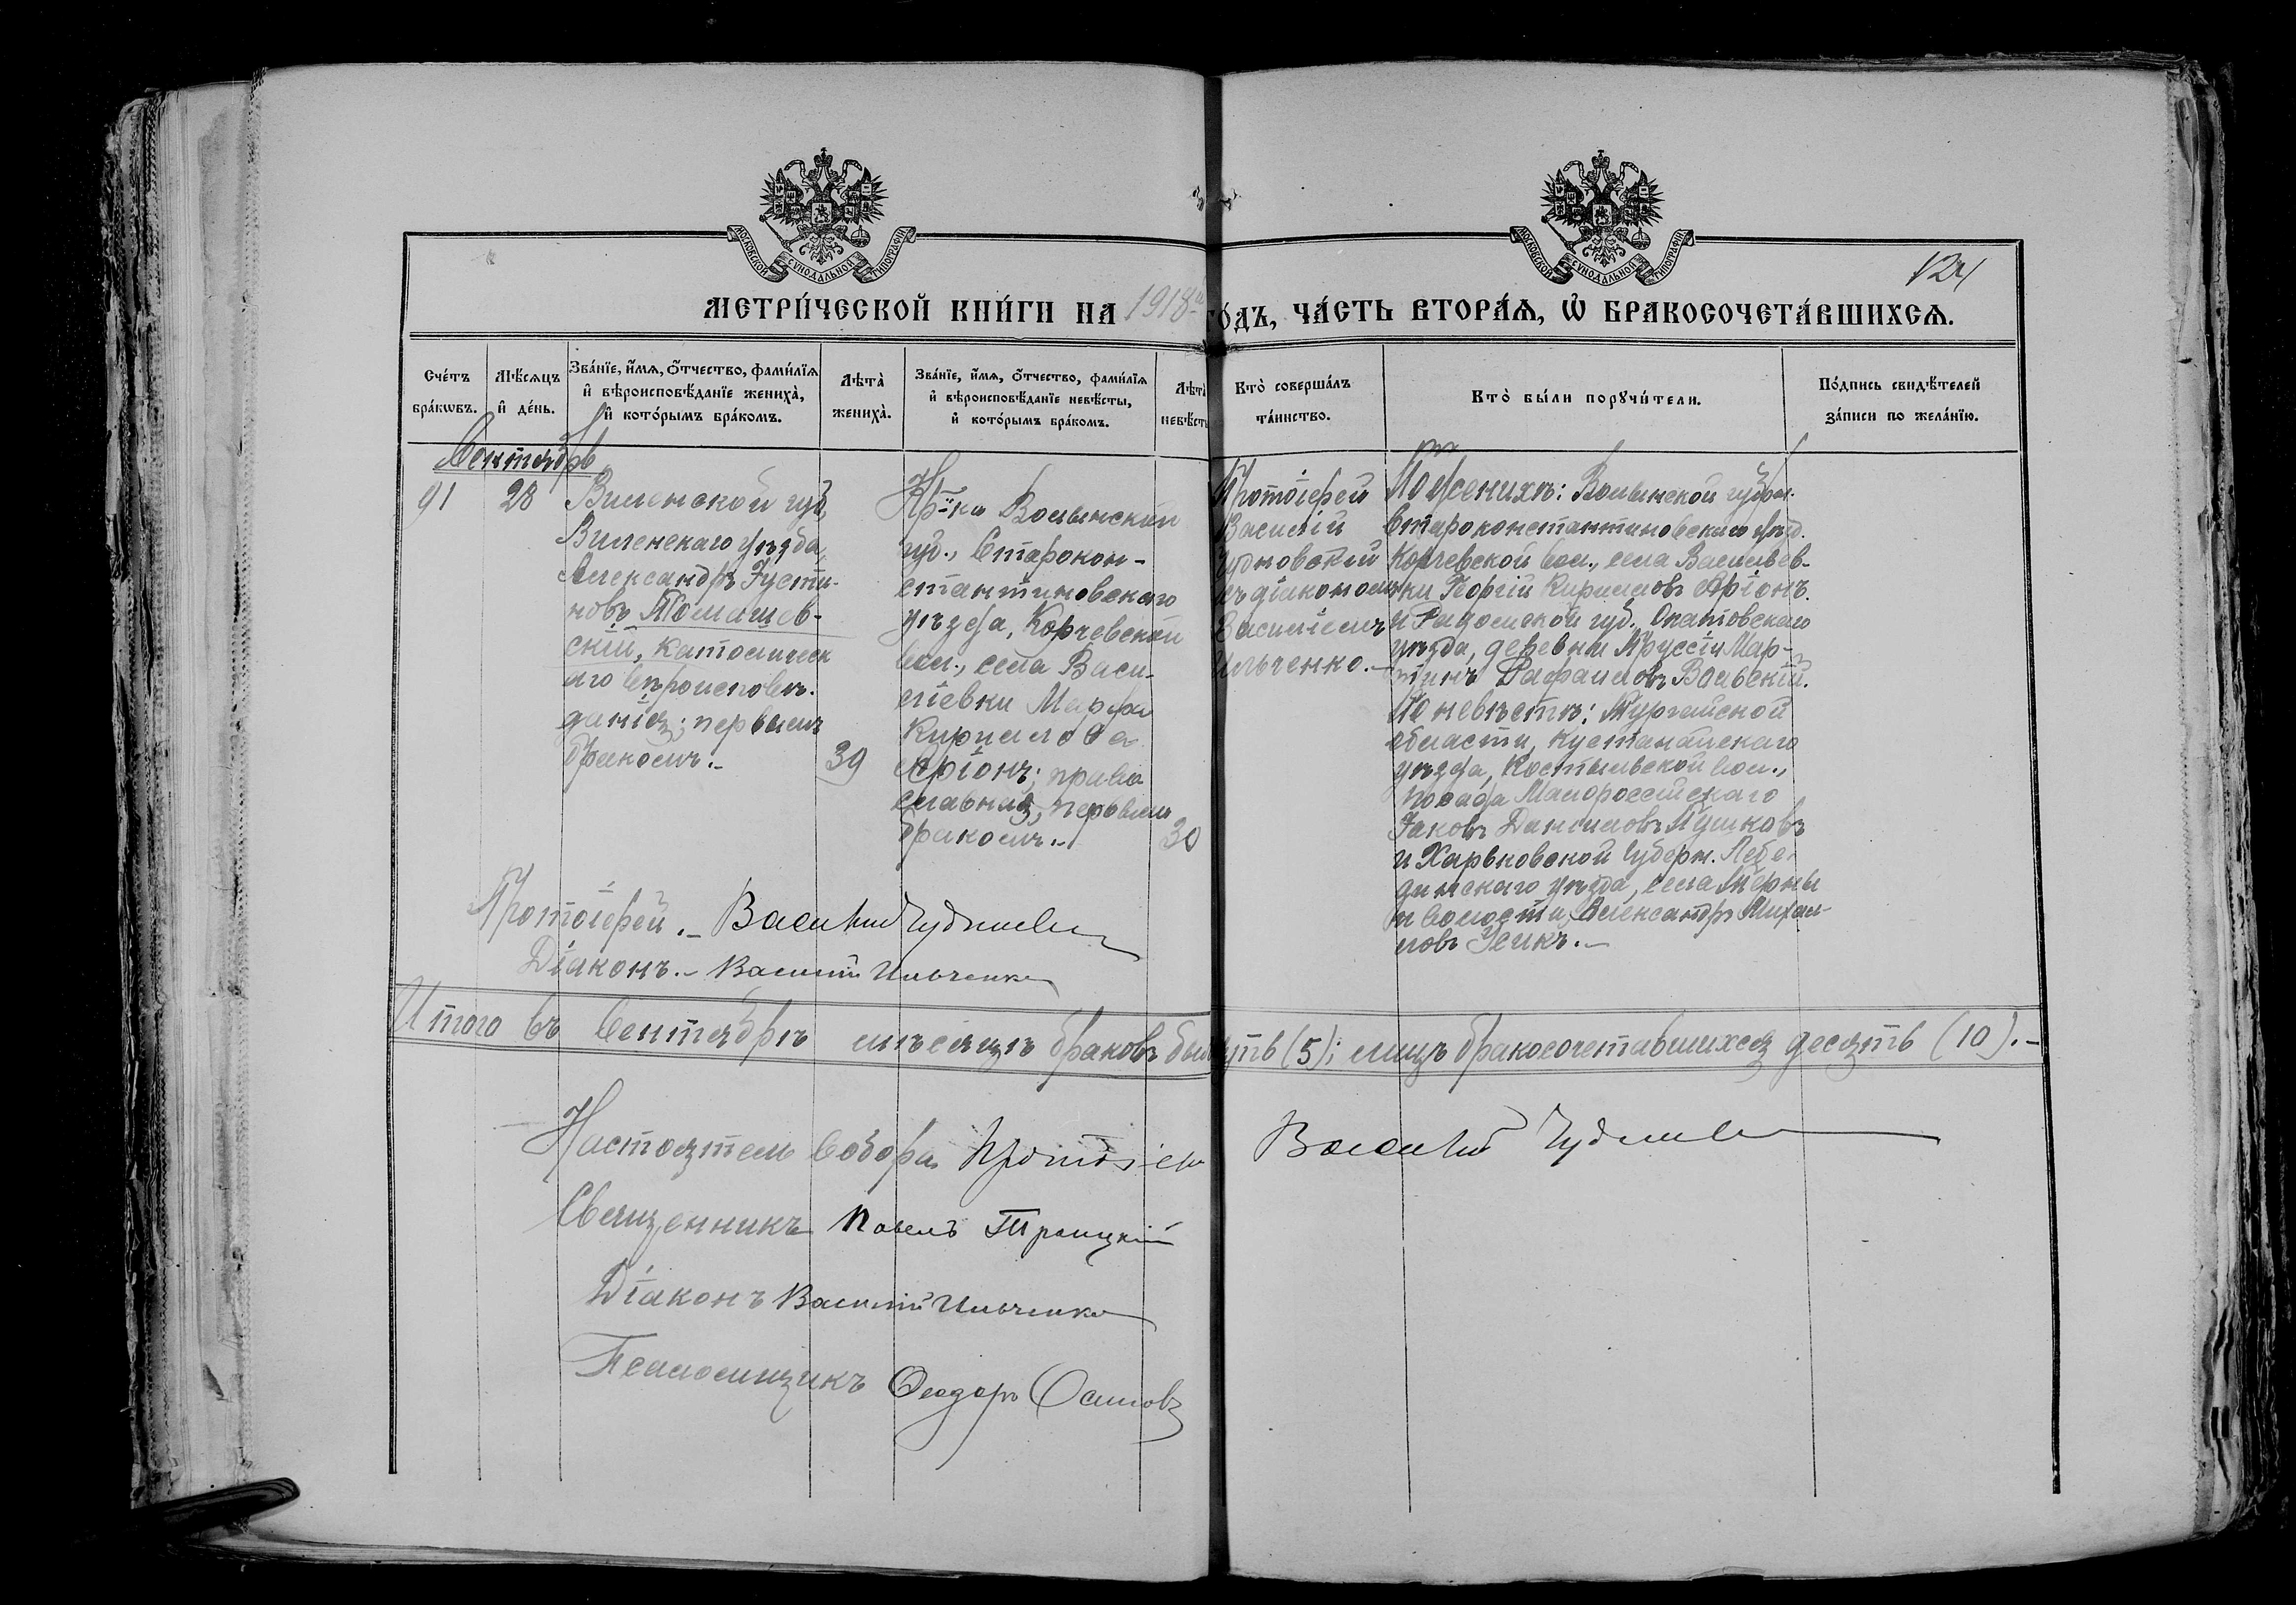 МОСКОВСКОЙ СѴНОДАЛЬНОЙ ТИПОГРАФІИ
МОСКОВСКОЙ СѴНОДАЛЬНОЙ ТИПОГРАФІИ
124
МЕТРИ́ЧЕСКОЙ КНИ́ГИ НА 1918й ГО́ДЪ, ЧА́СТЬ ВТОРА́Ѧ, Ѡ҆ БРАКОСОЧЕТА́ВШИХСѦ.
Сче́тъ
бра́кѡвъ.
Мѣ́сѧцъ
и҆ де́нь.
Зва́нїе, и҆́мѧ, ѻ҆́тчество, фами́лїѧ
и҆ вѣроисповѣ́данїе жениха̀,
и҆ кото́рымъ бра́комъ.
Лѣта̀
жениха̀.
Зва́нїе, и҆́мѧ, ѻ҆́тчество, фами́лїѧ
и҆ вѣроисповѣ́данїе невѣ́сты,
и҆ кото́рымъ бра́комъ.
Лѣта̀
невѣ́сты
Кто̀ соверша́лъ
та́инство.
Кто̀ бы́ли порꙋчи́тели.
По́дпись свидѣ́телей
за́писи по жела́нїю.
Сентябрь
91
28
Виленской губ,
Виленскаго уѣзда,
Александръ Густи-
новъ Томашев-
скій, католическ
аго вѣроисповѣ-
данія; первымъ
бракомъ.–
39
Кр-ка Волынской
губ., Старокон-
стантиновскаго
уѣзда, Корчевской
вол., села Васи-
лiевки Марфа
Кирилова
Аріонъ; право
славная, первымъ
бракомъ.–
30
Протоіерей
Василій
Чудновскій
съ діакономъ
Василіемъ
Ильченко.–
По женихѣ: Волынской губерн.
Староконстантиновскаго уѣзд.
Корчевской вол., села Васильев-
ки Георгій Кириловъ Аріонъ.
и Радомской губ., Опатовскаго
уѣзда, деревни Пруссіи Мар-
тинъ Рафаиловъ Вольскій.
По невѣстѣ: Тургайской
области, Кустанайскаго
уѣзда, Костыльской вол.,
посада Малороссійскаго
Іаковъ Даниловъ Пушковъ
и Харьковской Губерн. Лебе-
динскаго уѣзда, села Терны
и волости, Александръ Михаи-
ловъ Усикъ.–
Протоіерей.– Василий Чудновск
Діаконъ.– Василій Ильченко
Итого въ Сентябрѣ мѣсяцѣ браковъ было пять (5); лицъ бракосочетавшихся десять (10).–
Настоятель Собора Протоіер Василий Чудновск
Священникъ Павелъ Троицкій
Діаконъ Василій Ильченко
Псаломщикъ Ѳеодоръ Осиповъ